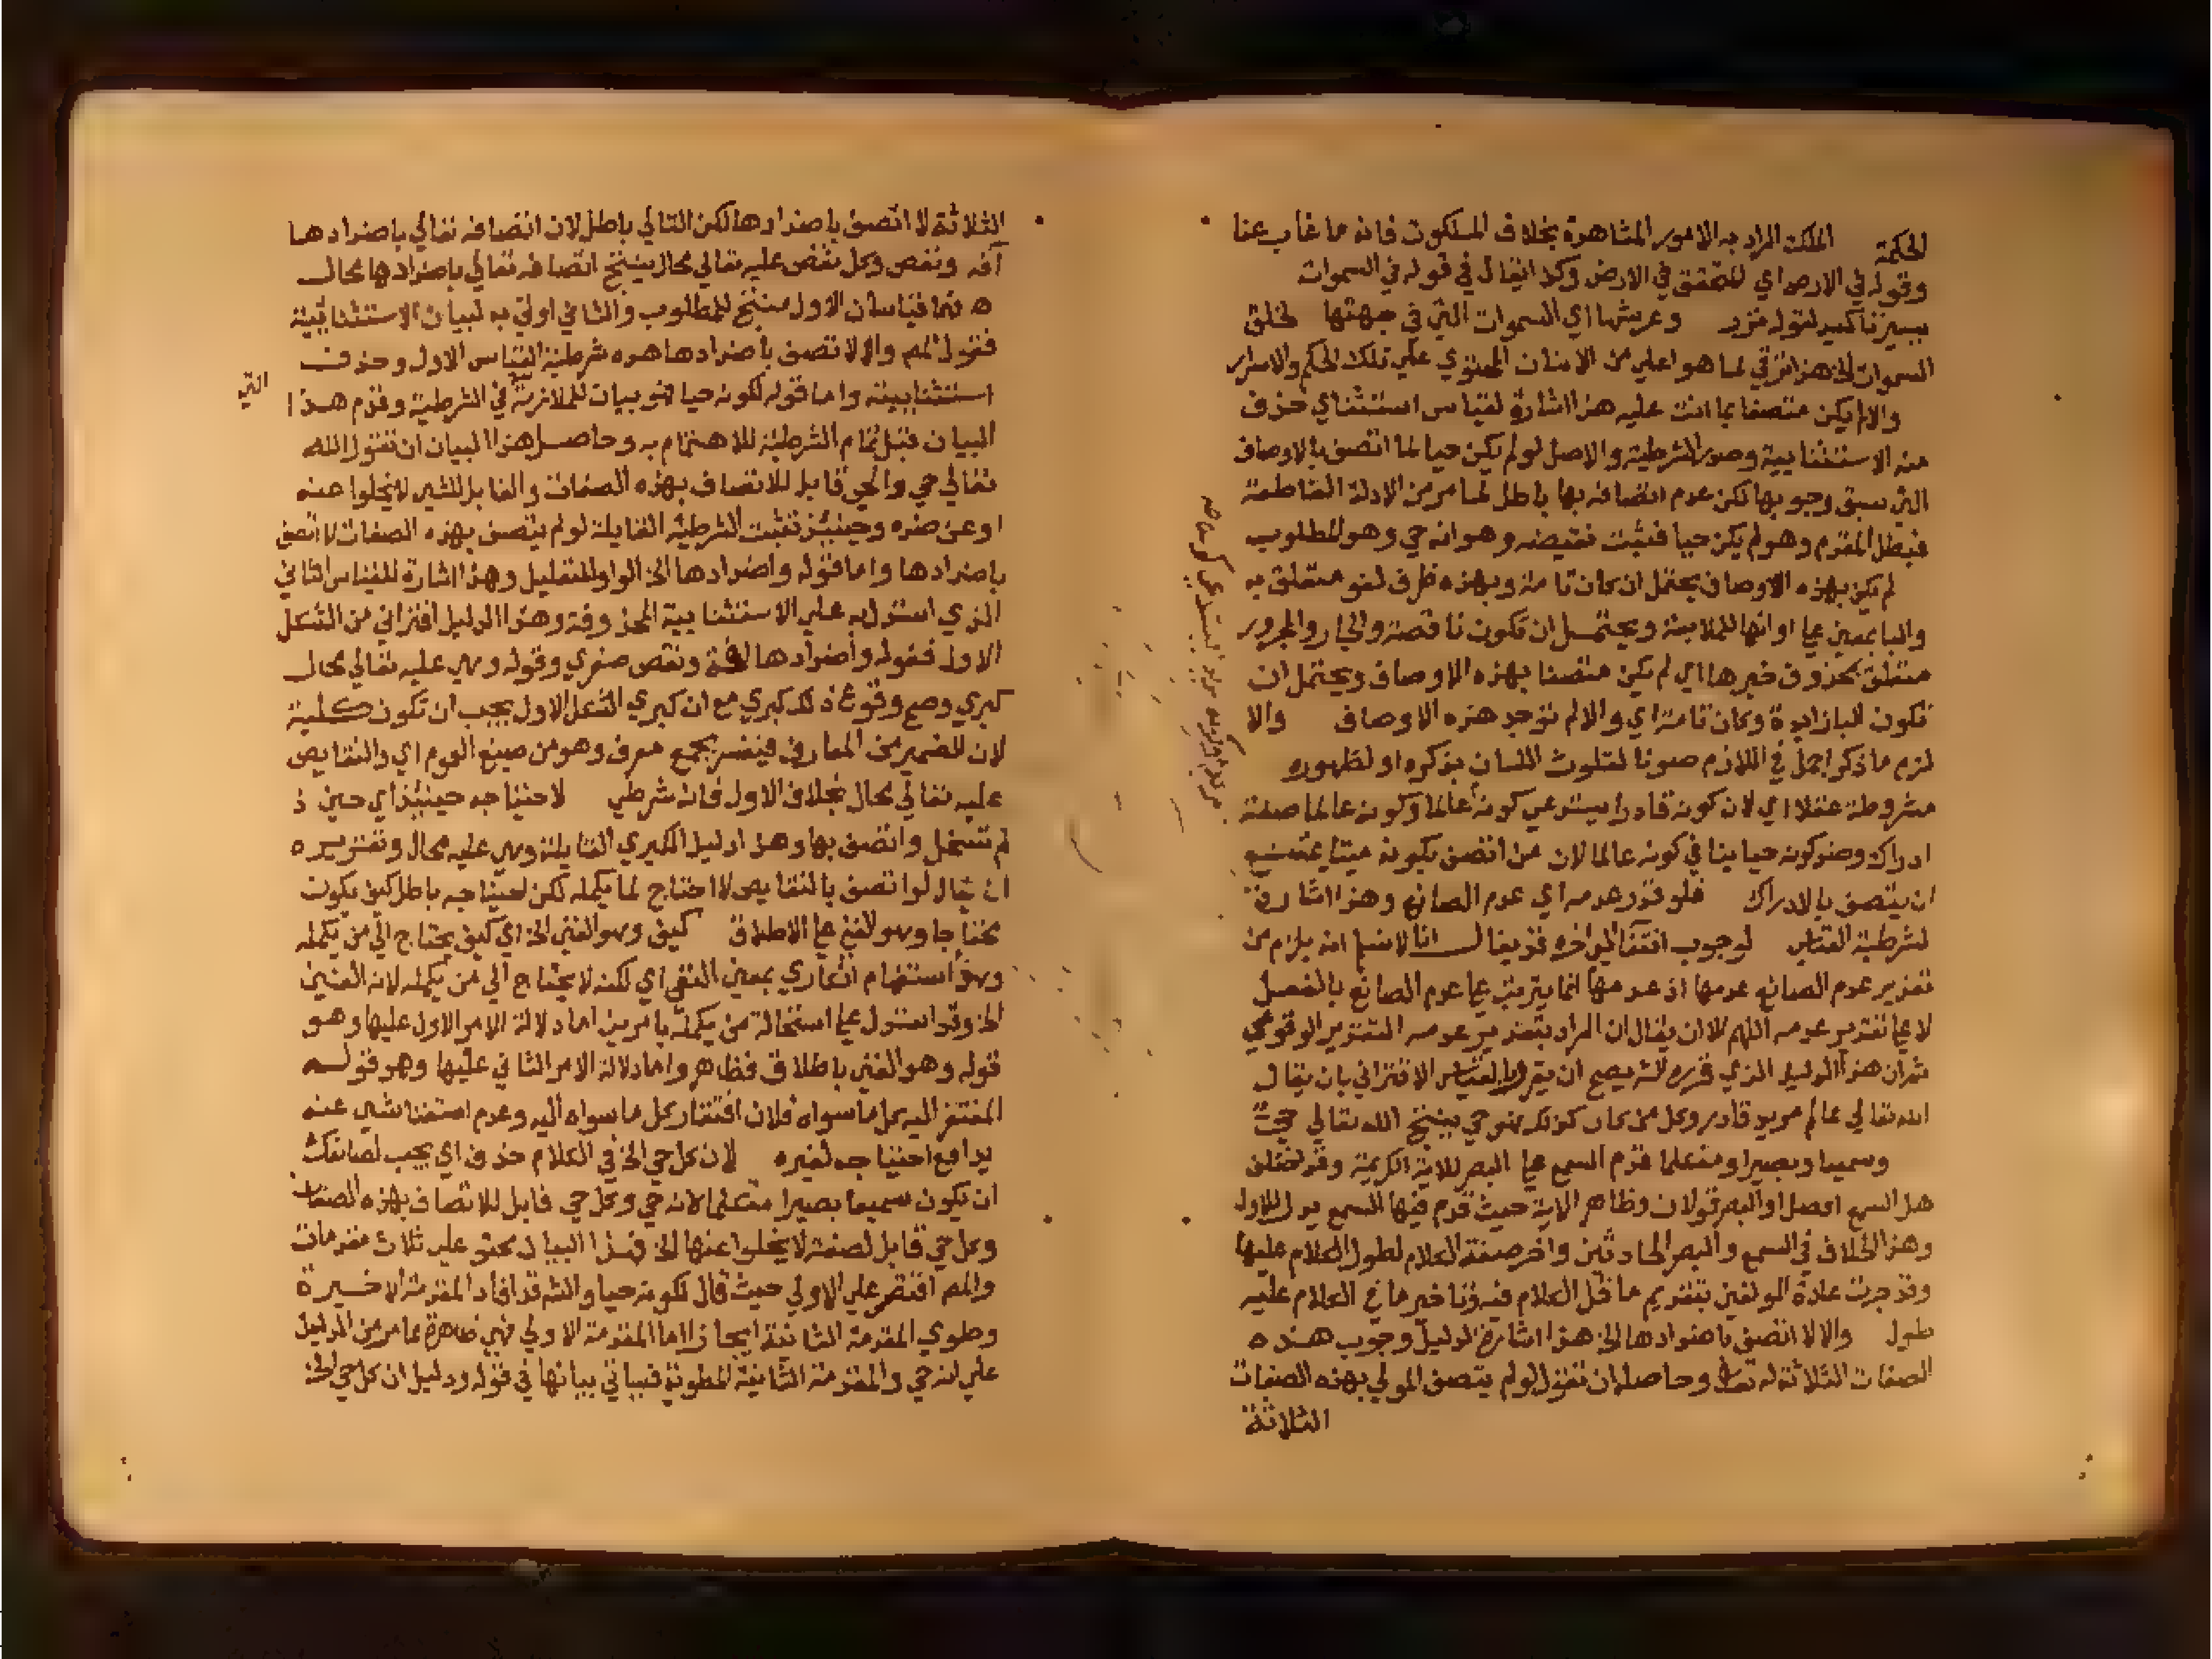 الحكمة الملك المراد به الامور المشاهدة بخلاف الملكوت فانه ما غاب عنا
وقوله في الارض اي للتحقق في الارض وكذا يقال في قوله في السموات
تاكيد لقوله وعرشها اي السموات التي في جهتها لخلق
السموات الخ هذا ترقي لما هو اعلي من الانسان المحتوي علي تلك الحكم والاسرار
والا لم يكن متصفا بما انت عليه هذا اشارة لقياس استثنائي حذف
منه الاستثنايية وصور الشرطية والاصل لو لم يكن حيا لما اتصف بالاوصاف
التي سبق وجوبها لكن عدم اتصافه بها باطل لما مر من الادلة القاطعة
فبطل المقدم وهو لم يكن حيا فثبت نقيضه وهو انه حي وهو المطلوب
لم يكن بهذه الاوصاف يحتمل ان كان تامة وبهذه ظرف لغو متعلق به
والبا بمعني علي او انها للملابسة ويحتمل ان تكون ناقصة والجار والمجرور
متعلق بمحذوف خبرها اي لم تكن متصفا بهذه الاوصاف ويحتمل ان
تكون البا زايدة وكان تامة اي والا لم توجد هذه الاوصاف والا
لزم ما ذكر اجمل في اللازم صونا لتلوث اللسان بذكره او لظهوره
مشروطة عقلا اي لان كونه قادرا يستدعي كونه عالما وكونه عالما صفة
ادراك وضد كونه حيا ينافي كونه عالما لان من اتصف بكونه ميتا يمتنع
ان يتصف بالادراك فلو قدر عدمه اي عدم الصانع وهذا اشارة
لشرطية القياس لوجوب انتفا الي اخره قد يقال انا لا نسلم انه يلزم من
تقدير عدم الصانع عدمها اذ عدمها انما يترتب علي عدم الصانع بالفعل
لا علي تقدير عدمه اللهم الا ان يقال ان المراد بتقدير عدمه التقدير الوقوعي
ثم ان هذا الدليل الذي قرره الش يصح ان يقرر بالقياس الاقتراني بان يقال
الله تعالي عالم مريد قادر وكل من كان كذلك فهو حي ينتج الله تعالي حي
وسميعا وبصيرا ومتكلما قدم السمع علي البصر للاية الكريمة وقد اختلف
هل السمع افضل او البصر قولان وظاهر الاية حيث قدم فيها السمع يدل للاول
وهذا الخلاف في السمع والبصر الحادثين واخر صفة الكلام لطول الكلام عليها
وقد جرت عادة المولفين بتقديم ما قل الكلام فيه وتاخير ما في الكلام عليه
طول والا لاتصف باضدادها الخ هذا اشارة لدليل وجوب هذه
الصفات الثلاثة له تعالي وحاصله ان تقول لو لم يتصف المولي بهذه الصفات
الثلاثة
الثلاثة لاتصف باضدادها لكن التالي باطل لان اتصافه تعالي باضدادها
آفة ونقص وكل نقص عليه تعالي محال ينتج اتصافه تعالي باضدادها محال
فهما قياسان الاول منتج للمطلوب والثاني اوتي به لبيان الاستثنائية
فقول المص والا لاتصف باضدادها هذه شرطية القياس الاول وحذف
استثنايية واما قوله لكونه حيا فهو بيان للملازمة في الشرطية وقدم هذا
التي
البيان قبل تمام الشرطية للاهتمام به وحاصل هذا البيان ان تقول الله
تعالي حي والحي قابل للاتصاف بهذه الصفات والقابل للشي لا يخلوا عنه
او عن ضده وحينئذ ثبتت الشرطية القايلة لو لم يتصف بهذه الصفات لاتصف
باضدادها واما قوله واضدادها الخ الواو للتعليل وهذا اشارة للقياس الثاني
الذي استدل به علي الاستثنايية المحذوفة وهذا الدليل اقتراني من الشكل
الاول فقوله واضدادها آفة ونقص صغري وقوله وهي عليه تعالي محال
كبري وصح وقوع ذلك كبري مع ان كبري الشكل الاول يجب ان تكون كلية
لان الضمير من المعارف فيفسر بجمع معرف وهو من صيغ العموم اي والنقايص
عليه تعالي محال بخلاف الاول فانه شرطي لاحتياجه حينئذ اي حين ذ
لم تستحل واتصف بها وهذا دليل الكبري القايلة وهي عليه محال وتقريره
ان يقال لو اتصف بالنقايص لاحتاج لما يكمله لكن احتياجه باطل كيف يكون
محتاجا وهو الغني علي الاطلاق كيف وهو الغني الخ اي كيف يحتاج الي من يكمله
وهو استفهام انكاري بمعني النفي اي لكنه لا يحتاج الي من يكمله لانه الغني
الخ وقد استدل علي استحالة من يكمله بامرين اما دلالة الامر الاول عليها وهو
قوله وهو الغني باطلاق فظاهر واما دلالة الامر الثاني عليها وهو قوله
المفتقر اليه كل ما سواه فلان افتقار كل ما سواه اليه وعدم استغنا شي عنه
يدافع احتياجه لغيره لان كل حي الخ في الكلام حذف اي يجب لصانعك
ان يكون سميعا بصيرا متكلما لانه حي وكل حي قابل للاتصاف بهذه الصفات
وكل حي قابل لصفة لا يخلوا عنها الخ فهذا البيان محتو علي ثلاث مقدمات
والمص اقتصر علي الاولي حيث قال لكونه حيا والش قد افاد المقدمة الاخيرة
وطوي المقدمة الثانية ايجازا اما المقدمة الاولي فهي ظاهرة مما مر من الدليل
علي انه حي والمقدمة الثانية المطوية فياتي بيانها في قوله ودليل ان كل حي الخ